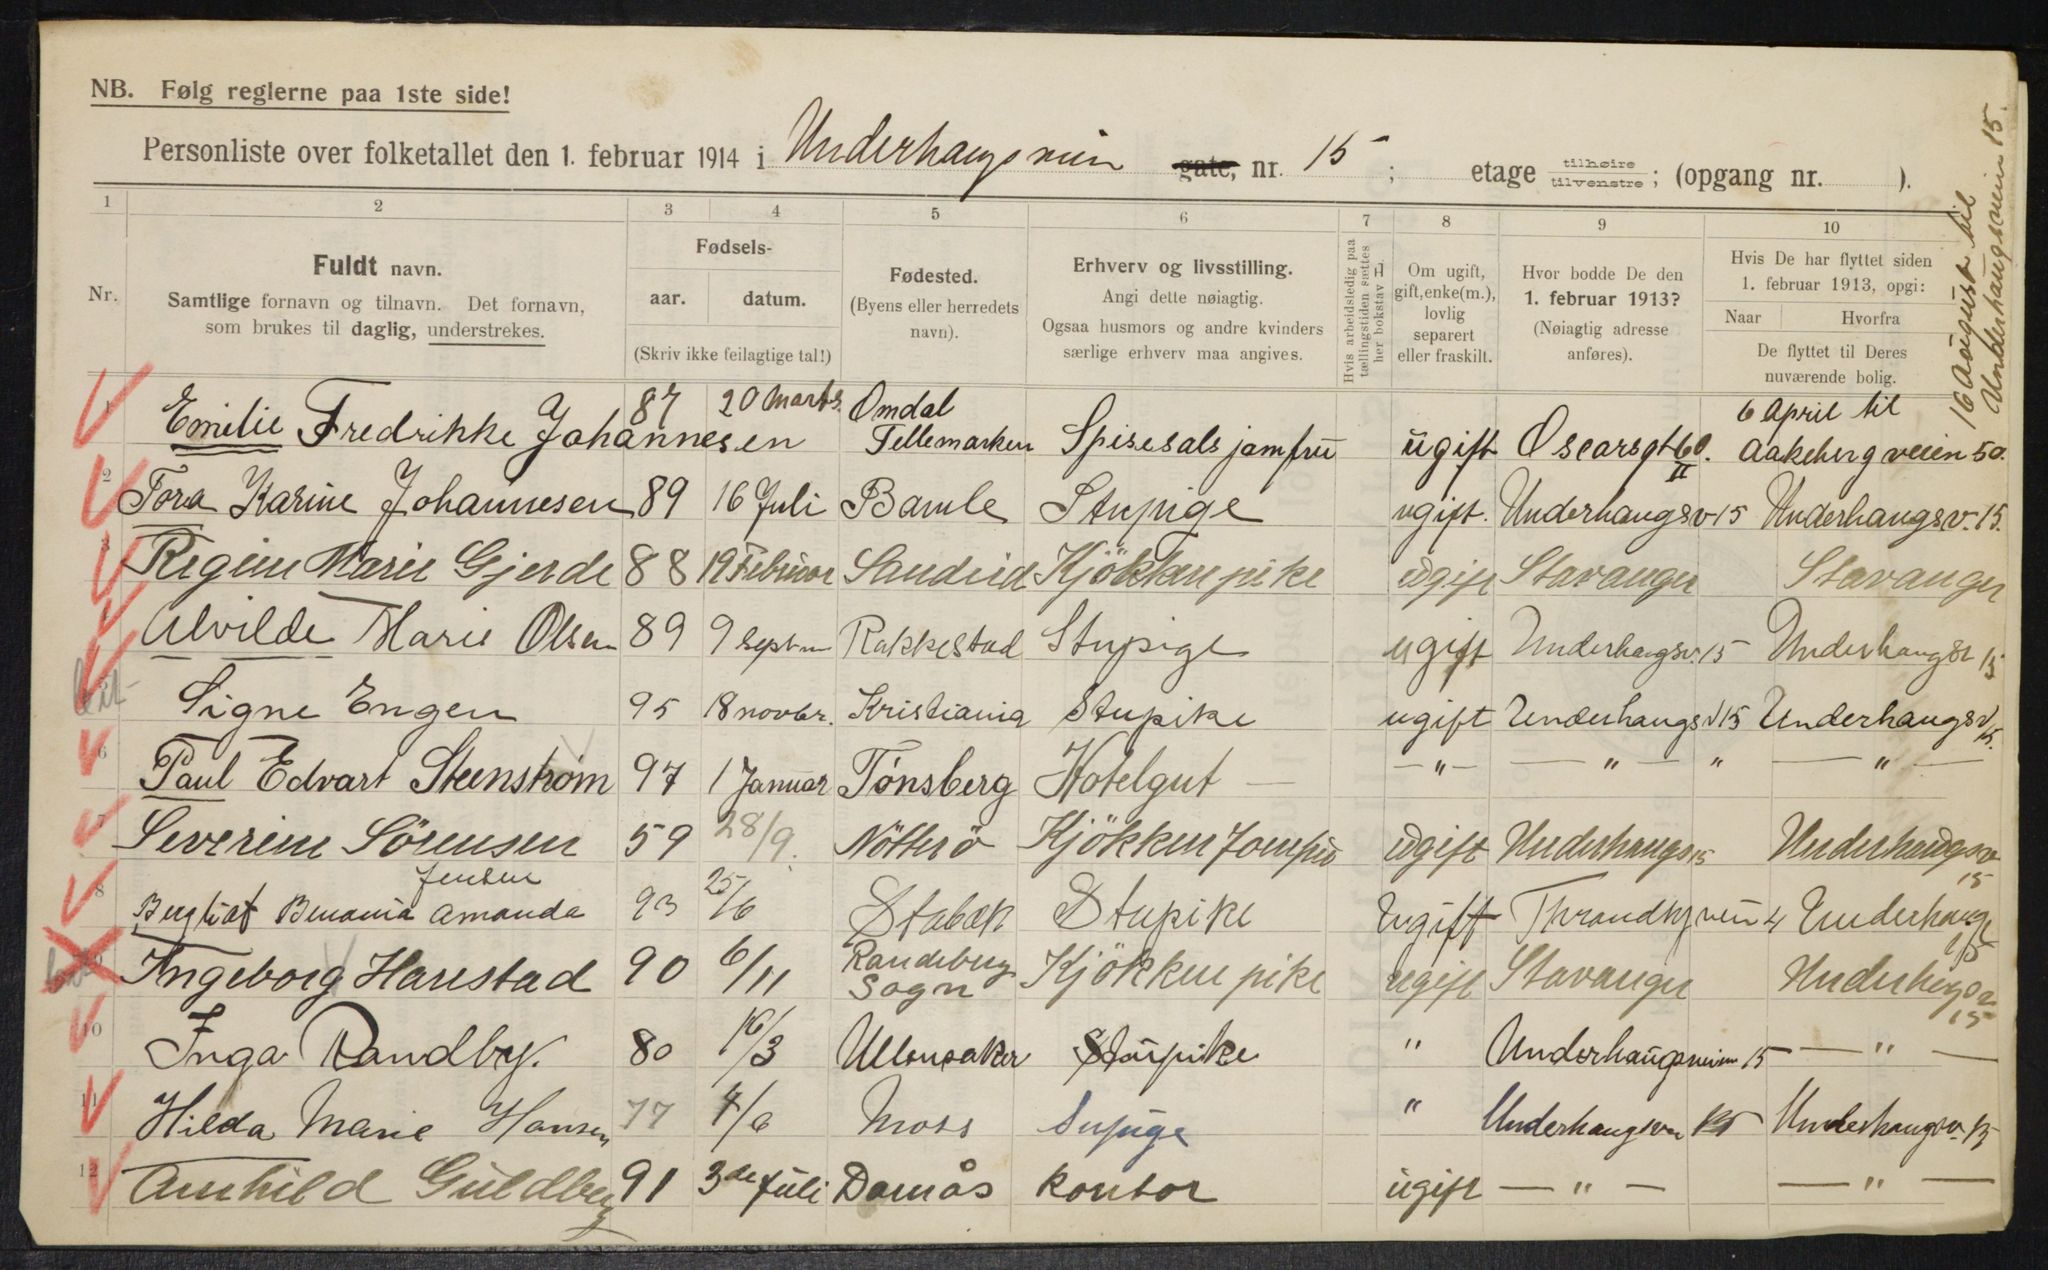 NB. Følg reglerne paa 1ste side!
Personliste over folketallet den 1. februar 1914 i Underhaugsveien gate, nr. 15 ; etage tilhøire tilvenstre ; (opgang nr. ).
16 August til
Underhaugsveien 15.
1 2 3 4 5 6 7 8 9 10
Nr.
Fuldt navn.
Samtlige fornavn og tilnavn. Det fornavn,
som brukes til daglig, understrekes.
Fødsels-
aar. datum.
(Skriv ikke feilagtige tal!)
Fødested.
(Byens eller herredets
navn).
Erhverv og livsstilling.
Angi dette nøiagtig.
Ogsaa husmors og andre kvinders
særlige erhverv maa angives.
Hvis arbeidsledig paa
tællingstiden sættes
her bokstav L
Om ugift,
gift, enke(m.),
lovlig
separert
eller fraskilt.
Hvor bodde De den
1. februar 1913?
(Nøiagtig adresse
anføres).
Hvis De har flyttet siden
1. februar 1913, opgi:
Naar Hvorfra
De flyttet til Deres
nuværende bolig.
1 Emilie Fredrikke Johannesen 87 20 Marts. Omdal Tellemarken Spisesalsjomfru ugift Oscarsgt 60. II 6 April til Aakebergveien 50.
2 Tora Karine Johannesen 89 16 Juli Bamle Stupige ugift. Underhaugsv 15 Underhaugsv. 15.
3 Regine Marie Gjerde 88 19 Februar Sandeid Kjökkenpike ugift Stavanger Stavanger
4 Alvilde Marie Olsen 89 9 Septm Rakkestad Stupige ugift Underhaugsv. 15 Underhaugsv 15
5 Signe Engen 95 18 novbr. Kristiania Stupike ugift Underhaugsv 15 Underhaugsv 15.
6 Paul Edvart Steenstrøm 97 1 Januar Tønsberg Hotelgut — — " — — " — " — " —
7 Severine Sörensen 59 28/9. Nötterö Kjökkenjomfru ugift Underhaugs 15 Underhaugsv 15
8 Bergliot Benonia Amanda Jensen 93 25/6 Stabæk Stupike Ugift Throndhjveien 4 Underhaugs 15
9 Ingeborg Harestad 90 6/11 Randeberg Sogn Kjökkenpike ugift Stavanger Underhugsv 15
10 Inga Randby. 80 16/3 Ullensaker Stupike " Underhaugsveien 15 — " —
11 Hilda Marie Hansen 77 4/6 Moss Supige " Underhaugsvn 15 Underhaugsv. 15
12 Arnhild Guldberg 91 3de Juli Domås kontor ugift — " — — " —